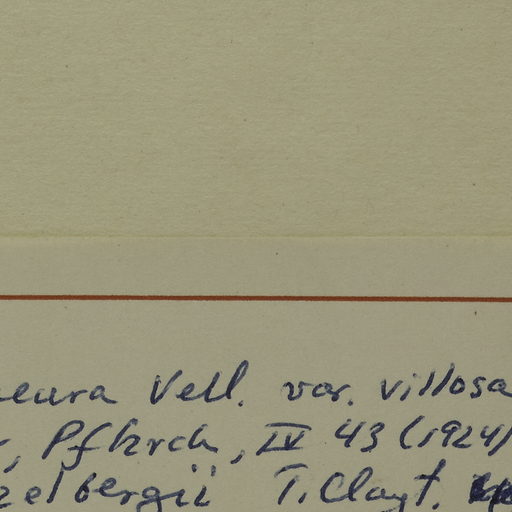 eura Vell. var. villosa
, Pflzrch, IV 43 (1924)
zelbergii T. Clayt.